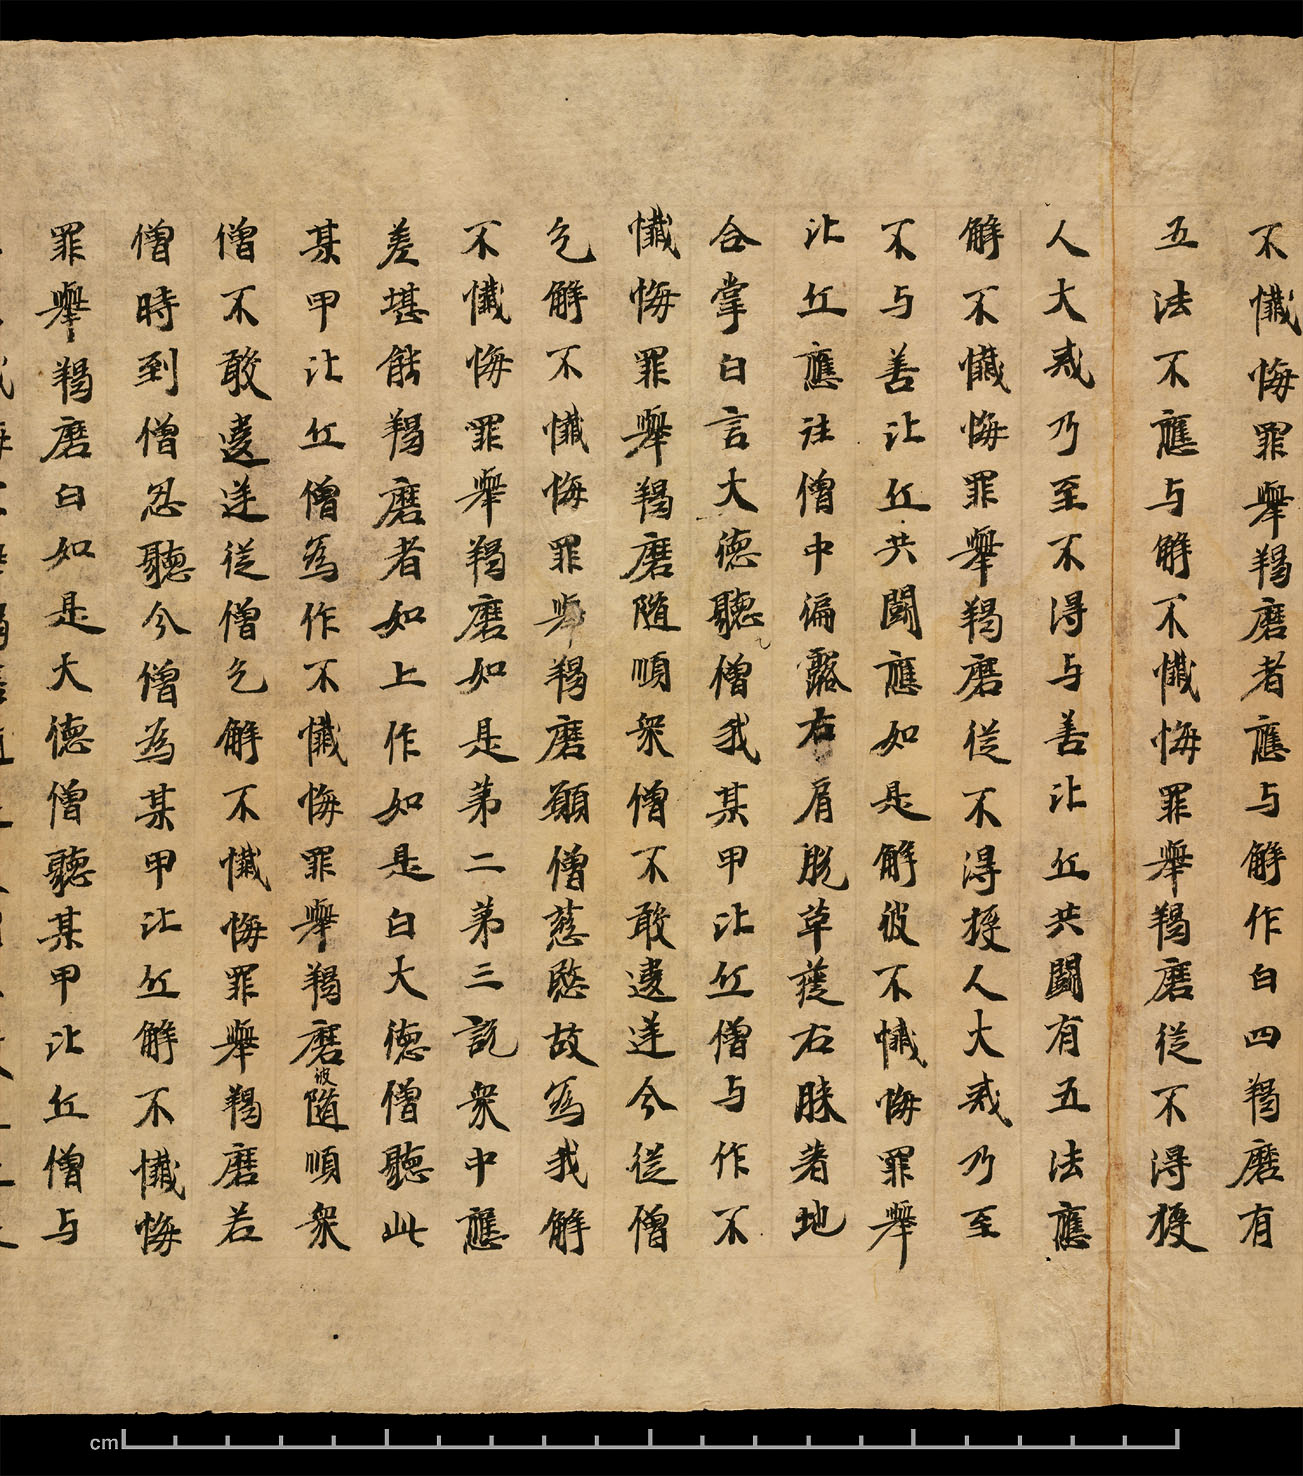 不懺悔罪舉羯磨者應与解作白四羯磨有
五法不應与解不懺悔罪舉羯磨從不得授
人大戒乃至不得与善比丘共鬪有五法應
解不懺悔罪舉羯磨從不得授人大戒乃至
不与善比丘共鬪應如是解彼不懺悔罪舉
比丘應往僧中偏露右肩脫革屣右膝著地
合掌白言大德聽僧我某甲比丘僧与作不
懺悔罪舉羯磨隨順衆僧不敢違逆今從僧
乞解不懺悔罪舉羯磨願僧慈愍故為我解
不懺悔罪舉羯磨如是第二第三說衆中應
差堪能羯磨者如上作如是白大德僧聽此
某甲比丘僧為作不懺悔罪舉羯磨彼隨順衆
僧不敢違逆從僧乞解不懺悔罪舉羯磨若
僧時到僧忍聽今僧為某甲比丘解不懺悔
罪舉羯磨白如是大德僧聽某甲比丘僧与